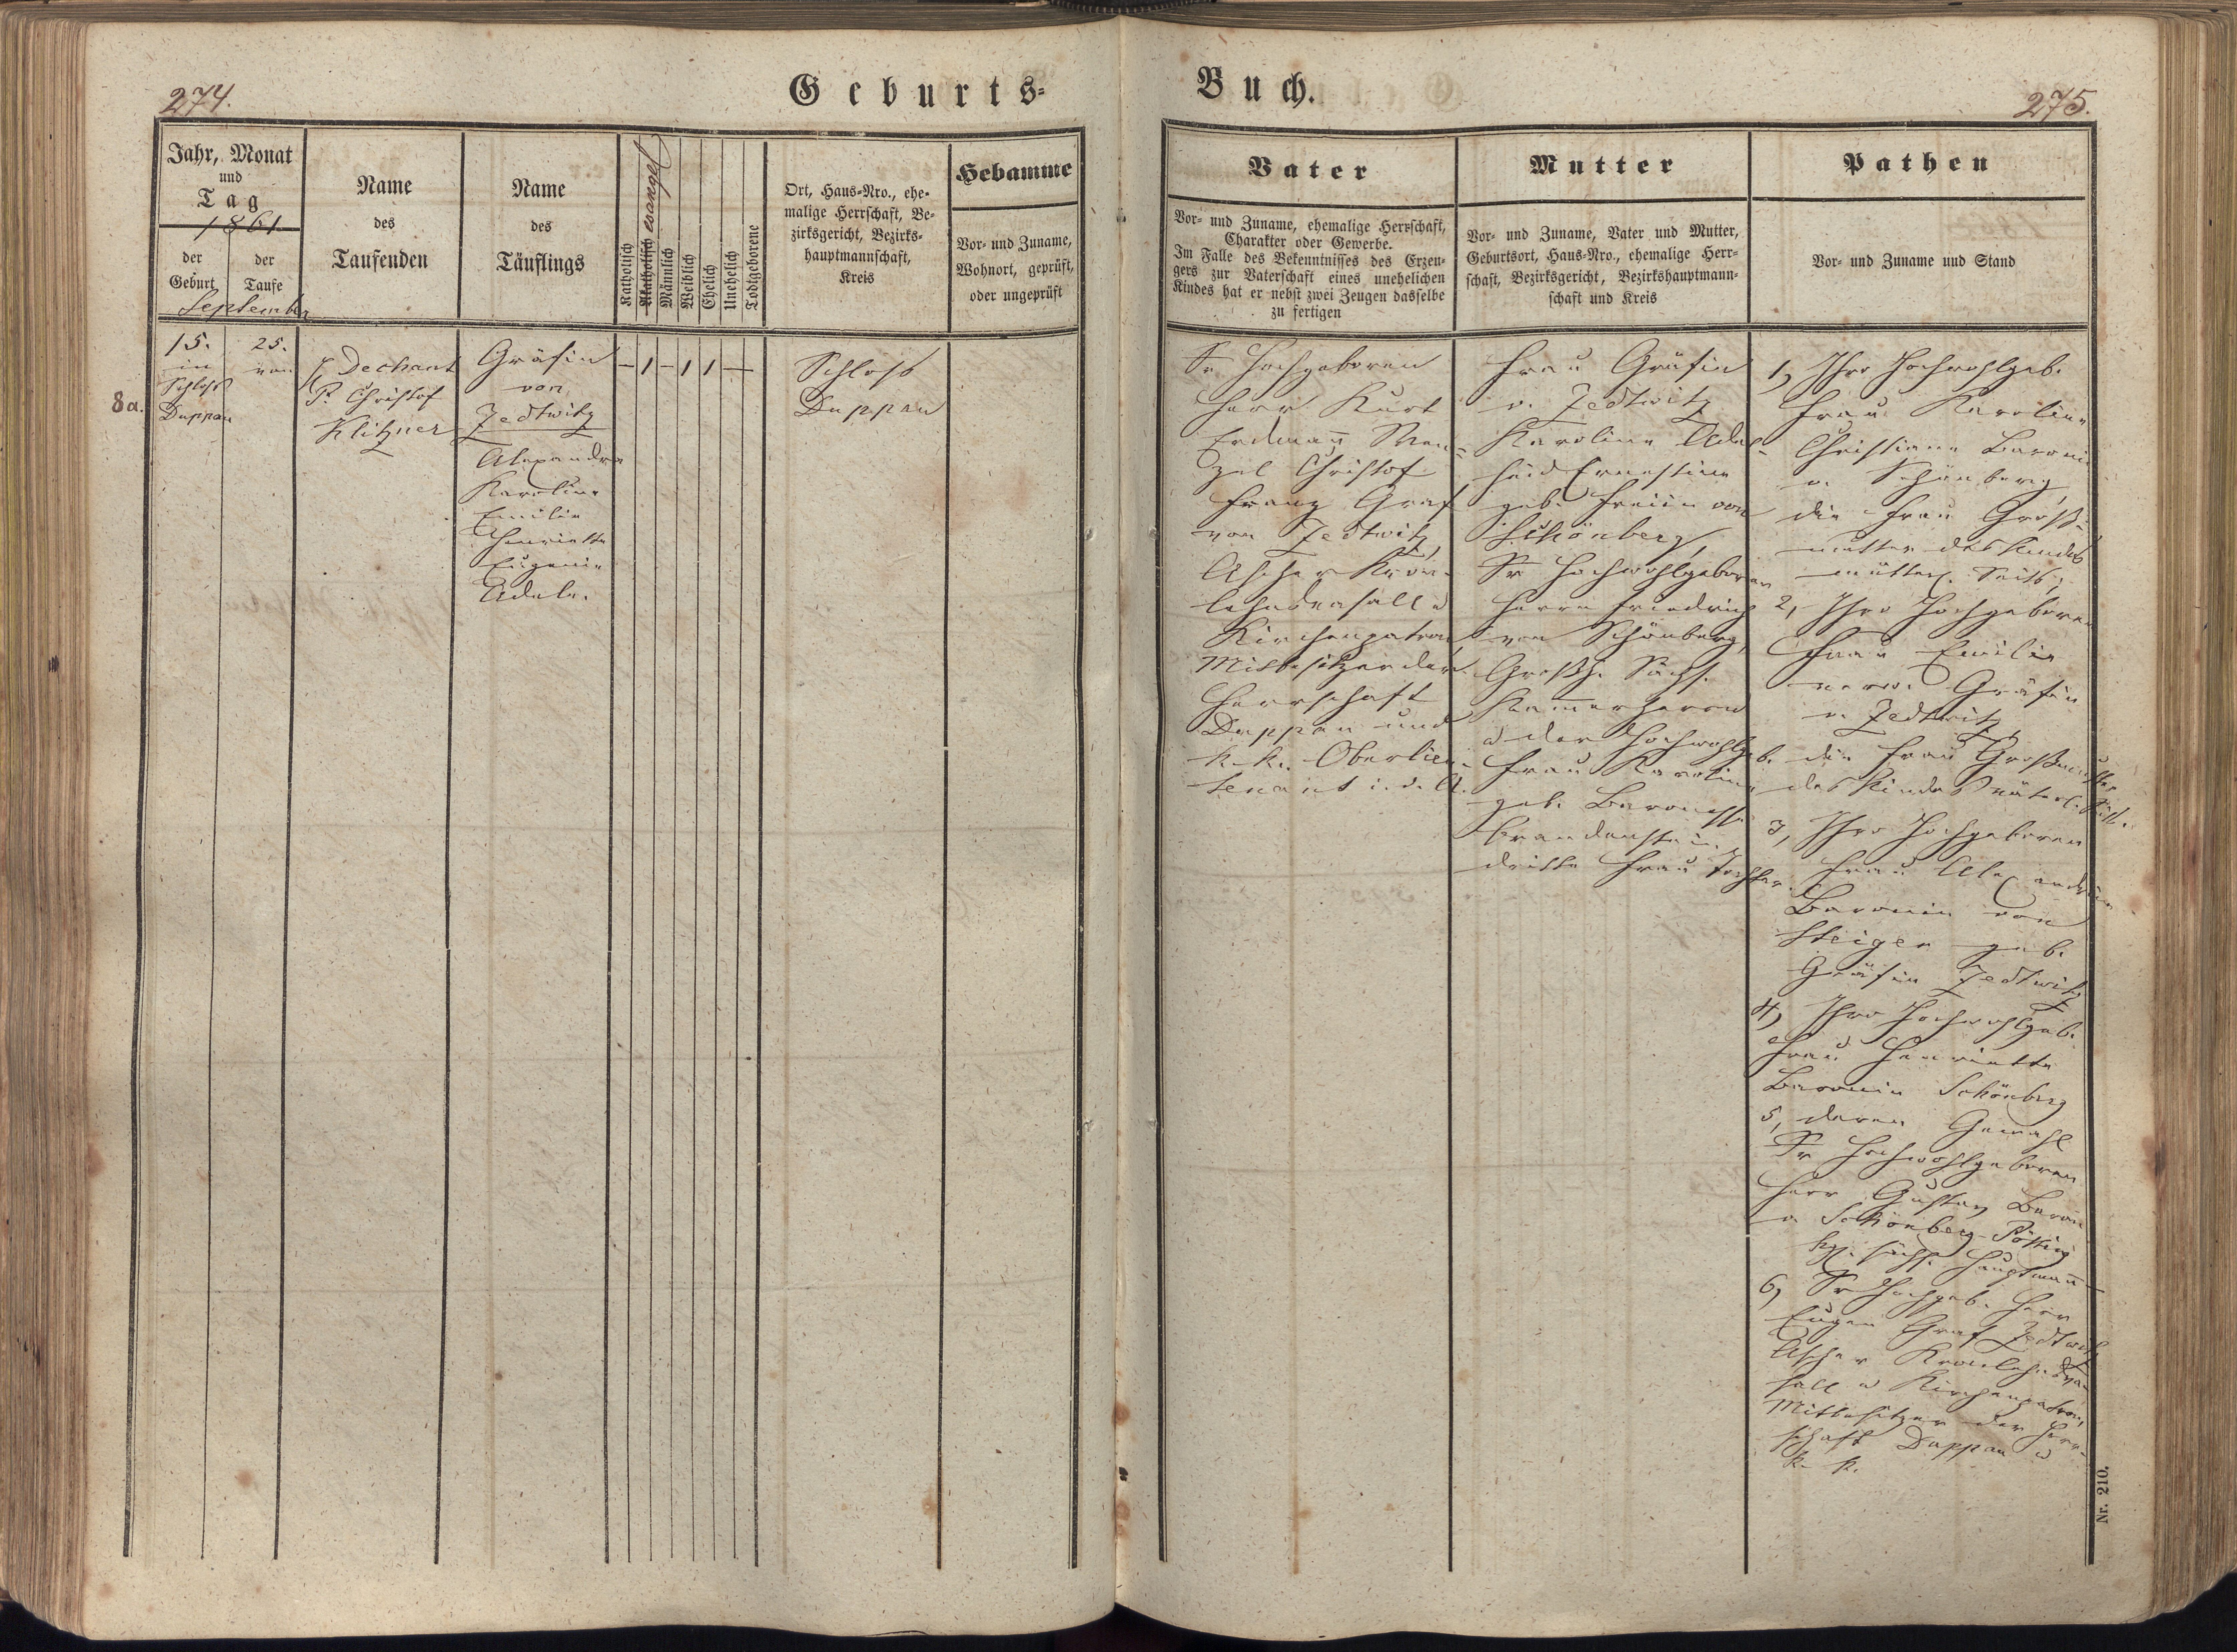 274.
Geburts-
Jahr, Monat
und
Tag
1861
der
Geburt
der
Taufe
September
Name
des
Taufenden
Name
des
Täuflings
Katholisch
Akatholisch evangel
Männlich
Weiblich
Ehelich
Unehelich
Todtgeborene
Ort, Haus-Nro., ehe-
malige Herrschaft, Be-
zirksgericht, Bezirks-
hauptmannschaft,
Kreis
Hebamme
Vor- und Zuname,
Wohnort, geprüft,
oder ungeprüft
8a.
15.
in
Schloß
Duppau
25.
Dechant
P. Christof
Klitzner
Gräfin
von
Zedtwitz
Alexandra
Karoline
Emilie
Henriette
Eugenie
Adele.
– 1 – 1 1 –
Schloß
Duppau
Buch.
275.
Vater
Vor- und Zuname, ehemalige Herrschaft,
Charakter oder Gewerbe.
Im Falle des Bekenntnisses des Erzeu-
gers zur Vaterschaft eines unehelichen
Kindes hat er nebst zwei Zeugen dasselbe
zu fertigen
Mutter
Vor- und Zuname, Vater und Mutter,
Geburtsort, Haus-Nro., ehemalige Herr-
schaft, Bezirksgericht, Bezirkshauptmann-
schaft und Kreis
Pathen
Vor- und Zuname und Stand
Sr Hochgeboren
Herr Kurt
Erdmann Wen-
zel Christof
Franz Graf
von Zedtwitz,
Ascher Kron-
lehensvasall u
Kirchenpatron,
Mitbesitzer der
Herrschaft
Duppau und
k. k. Oberlieu-
tenant i. d. A.
Frau Gräfin
v. Zedtwitz
Karoline Adel-
heid Ernestine
geb. Freiin von
Schönberg,
Sr Hochwohlgeboren
Herrn Friedrich
von Schönberg,
Großh. Sächs.
Kammerherrn
u der Hochwohlgeb.
Frau Karoline
geb. Baronesse
Brandenstein
dritte Frau Tochter.
1, Ihro Hochwohlgeb.
Frau Karoline
Christiane Baronin
v. Schönberg,
die Frau Groß-
mutter des Kindes
mütterl. Seits;
2, Ihro Hochgeboren
Frau Emilie
verw. Gräfin
v. Zedtwitz,
die Frau Großmutter
des Kindes väterl. Seits.
3, Ihro Hochgeboren
Frau Alexandrine
Baronin von
Steiger geb.
Gräfin Zedtwitz
4, Ihro Hochwohlgeb.
Frau Henriette
Baronin Schönberg
5, deren Gemahl
Sr Hochwohlgeboren
Herr Gustav Baron
v. Schönberg-Pötting
kgl. sächs. Hauptmann
6, Sr Hochgeb. Herr
Eugen Graf Zedtwitz
Ascher Kronlehensva-
sall u Kirchenpatron,
Mitbesitzer der Herr-
schaft Duppau u
k. k.
Nr. 210.